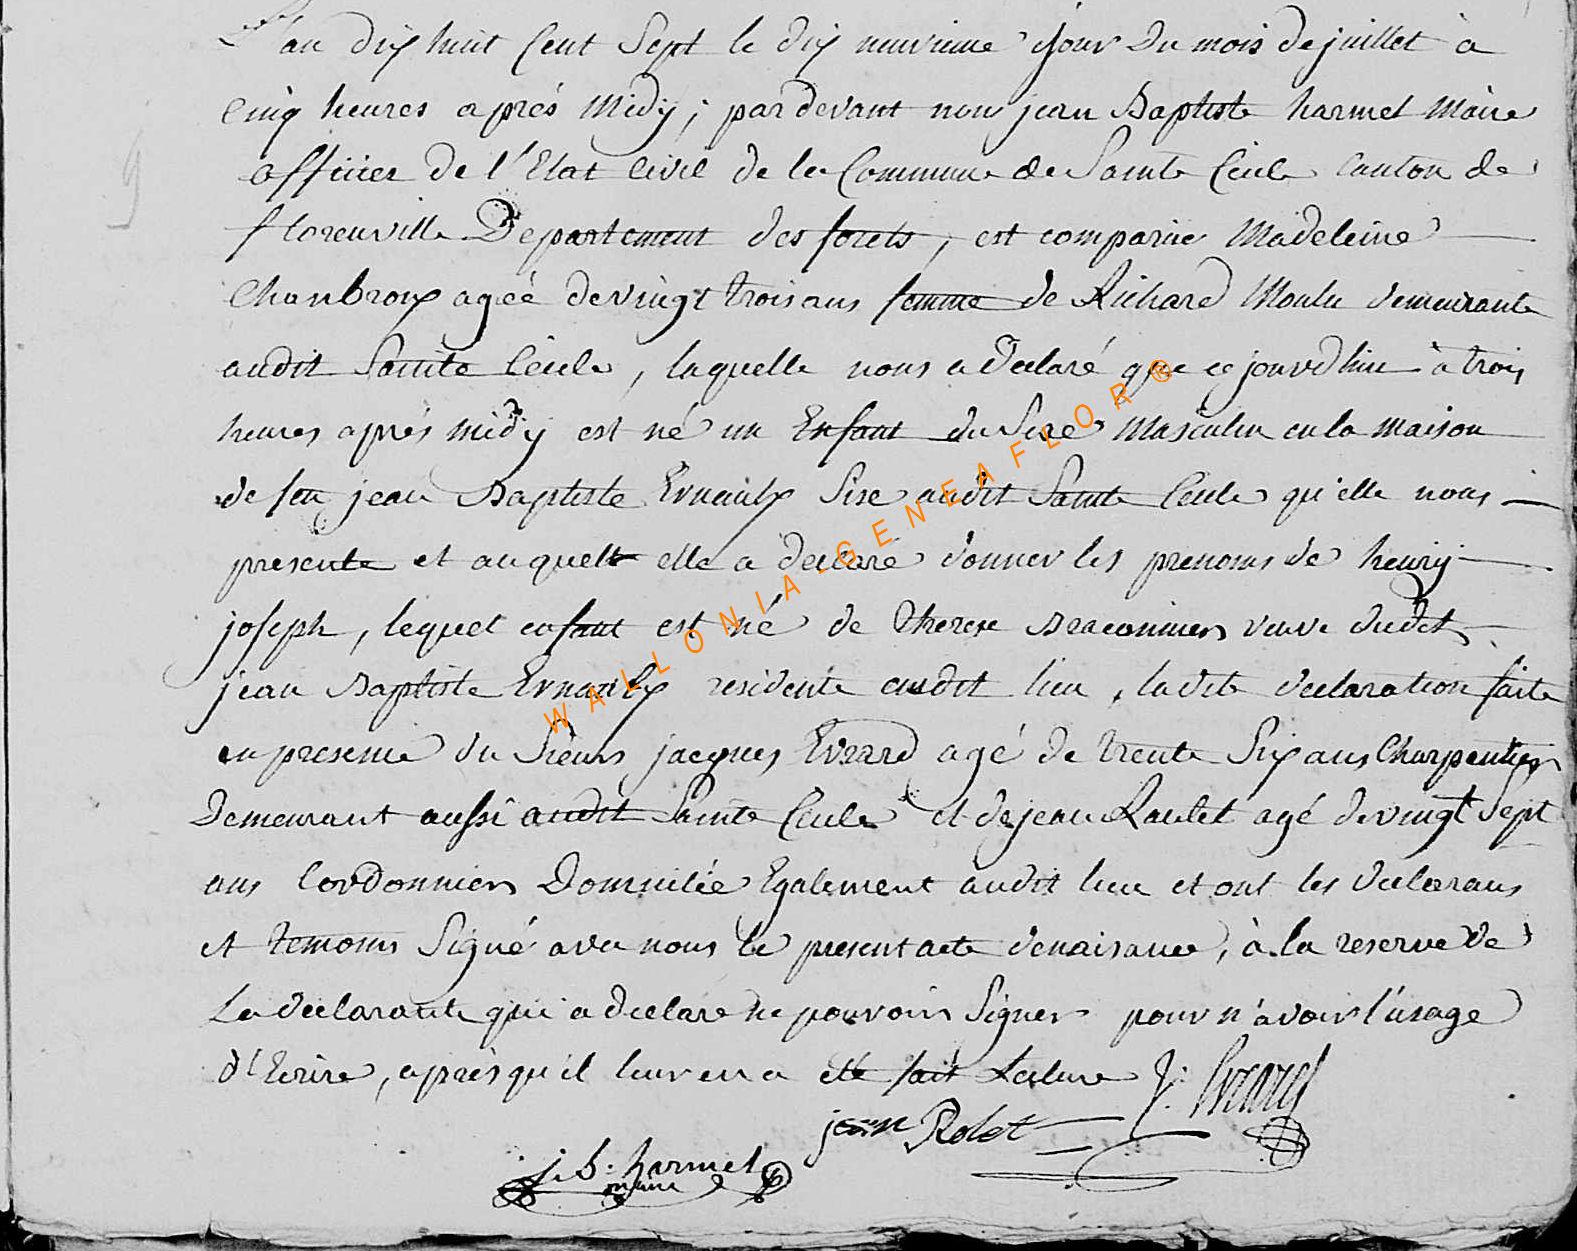 L'an dix huit Cent Sept le dix neuvieme jour du mois de juillet à
Cinq heures après Midÿ ; pardevant nous jean Baptiste harmel Maire
officier de l'Etat Civil de la Commune de Sainte Cecile Canton de
florenville Departement des forets, est comparüe Madeleine
Chanbroux ageé de vingt trois ans femme de Richard Moulu demeurante
audit Sainte Cécile, laquelle nous a declaré que ce jourd'hui à trois
heures après midÿ est né un Enfant du Sexe Masculin en la maison
de feu jean Baptiste Evnaulx Sise audit Sainte Cecile qu'elle nous
presente et auquel elle a declaré donner les prenoms de henrÿ
joseph, lequel enfant est né de Therese Braconnier veuve dudit
jean Baptiste Evnaulx residente audit lieu, la dite declaration faite
en presence du Sieurs jacques Evrard agé de trente Six ans Charpentier
Demeurant aussi audit Sainte Cecile et de jean Raulet agé de vingt Sept
ans Cordonnier Domiciliée Egalement audit lieu et ont les declarans
et temoins Signé avec nous le present acte de naisance, à la reserve de
La declarante qui a declaré ne pouvoir Signer pour n'avoir l'usage
d'Ecrire, après qu'il leur en a eté fait Lecture J: Evrard
jean Rolet
j. b. harmel
maire
WALLONIA-GENEAFLOR®
9